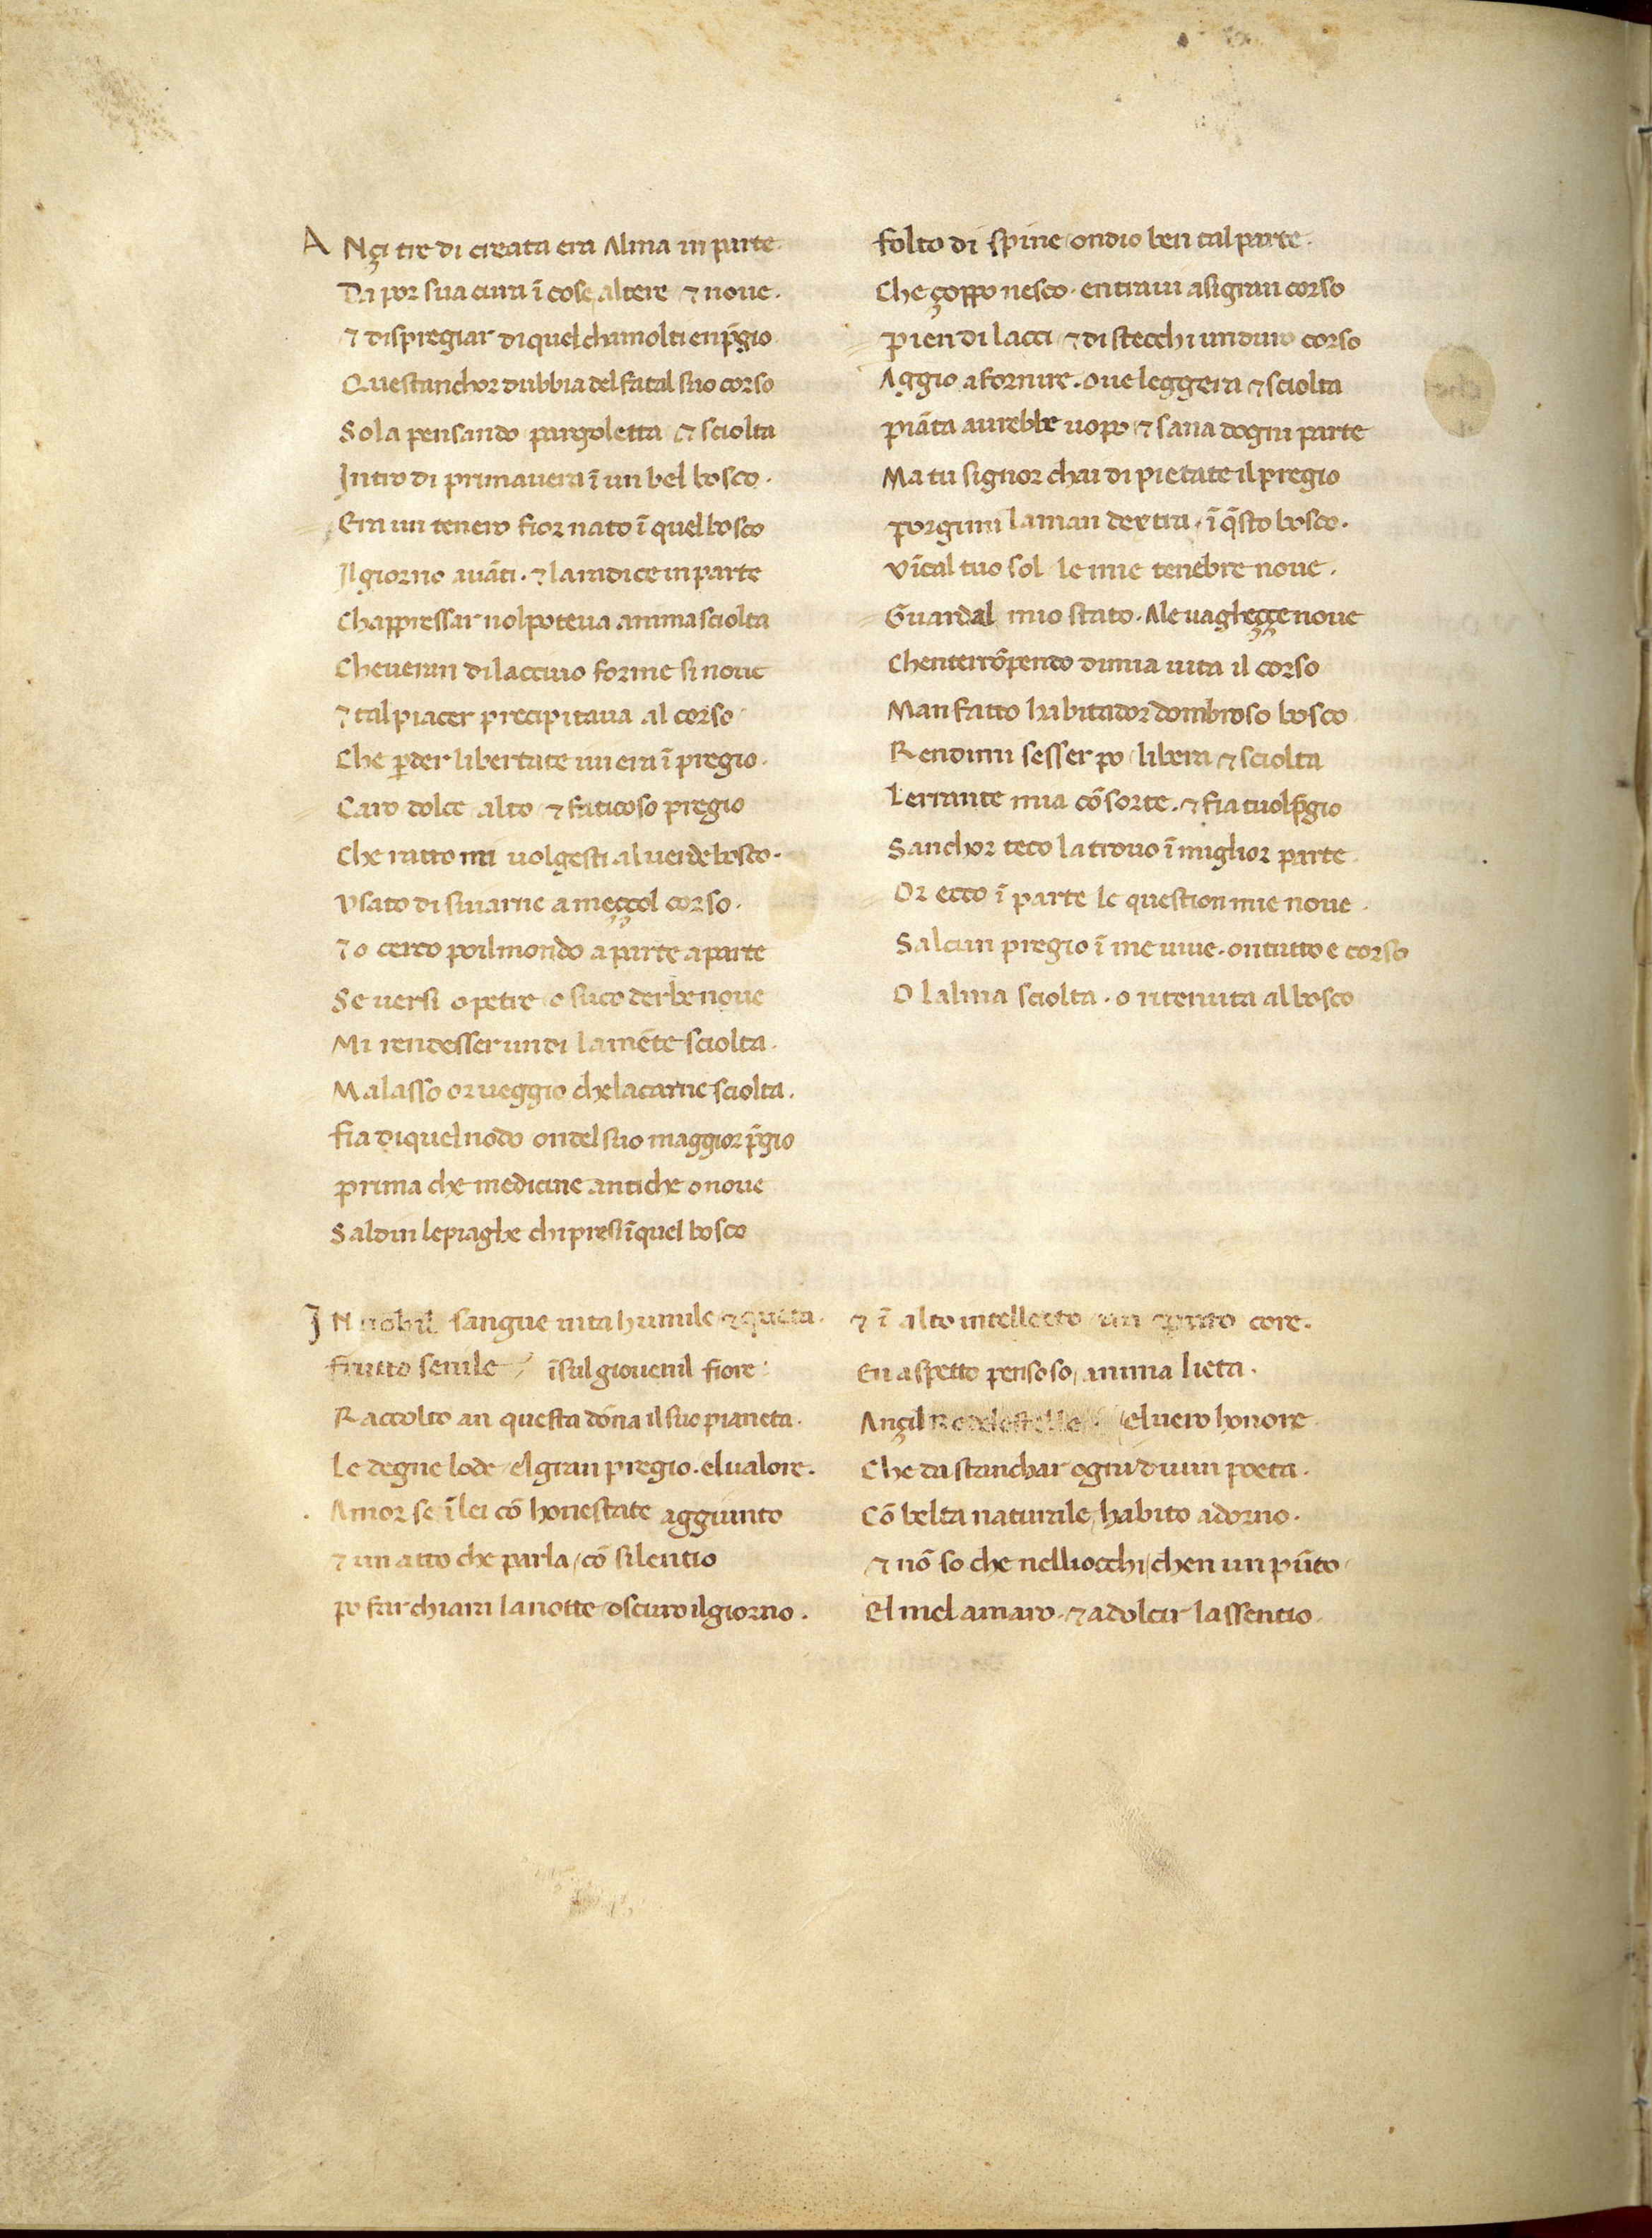 A Nçi tre di creata era Alma in parte.
Da por sua cura ī cose altere ⁊ noue.
⁊ dispregiar di quel cha molti en p̄gio
Questanchor dubbia del fatal suo corso
Sola pensando pargoletta ⁊ sciolta
Intro di primauera ī un bel bosco.
Era un tenero fior nato ī quel bosco
Il giorno auāti. ⁊ la radice in parte
Chappressar nol poteua anima sciolta
Che ueran di lacciuo forme si noue
⁊ tal piacer precipitaua al corso
Che ꝑder libertate iui era ī pregio.
Caro dolce alto ⁊ faticoso pregio
Che ratto mi uolgesti al uerde bosco.
Vsato di suiarne a meççol corso.
⁊ o cerco poil mondo a parte a parte
Se uersi o petre o suco derbe noue
Mi rendesser un di la mēte sciolta.
Ma lasso or ueggio che la carne sciolta.
Fia di quel nodo ondel suo maggior p̄gio
Prima che medicine antiche o noue
Saldin le piaghe chi presi ī quel bosco
Folto di spine ondio ben tal parte.
Che çoppo nesco. entraui a si gran corso
Pien di lacci ⁊ di stecchi un duro corso
Aggio a fornire. oue leggera ⁊ sciolta
Piāta aurebbe uopo ⁊ sana dogni parte
Ma tu signor chai di pietate il pregio
Porgimi la man dextra. ī q̄sto bosco.
Vīcal tuo sol le mie tenebre noue.
Guardal mio stato. Ale uagheççe noue
Chenterrōpendo di mia uita il corso
Man fatto habitador dombroso bosco
Rendimi sesser po libera ⁊ sciolta
Lerrante mia cōsorte. ⁊ fia tuol p̄gio
Sanchor teco la trouo ī miglior parte
Or ecco ī parte le question mie noue.
Salcun pregio ī me uiue. on tutto e corso
O lalma sciolta. o ritenuta al bosco
I N nobil sangue uita humile ⁊ queta. ⁊ ī alto intellecto un puro core.
Frutto senile ī sul giouenil fiore En aspetto pensoso anima lieta.
Raccolto an questa dōna il suo pianeta. Ançil Re de le stelle el uero honore
Le degne lode el gran pregio. el ualore. Che da stanchar ogni diuin poeta.
Amor se ī lei cō honestate aggiunto Cō belta naturale habito adorno.
⁊ un atto che parla cō silentio ⁊ nō so che nelli occhi chen un pūto
Po far chiara la notte oscuro il giorno. El mel amaro. ⁊ adolcir lassentio.